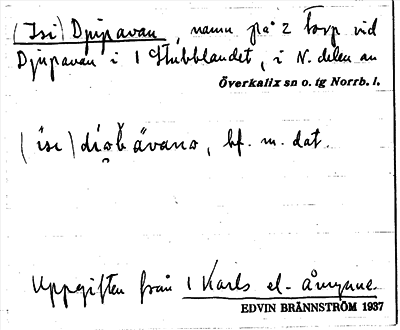 (Isi) Djupavan, namn på 2 torp vid
Djupavan i 1 Stubblandet, i N. delen av
Överkalix sn o. tg Norrb. l.
(isi) bf. m. dat.
Uppgiften från 1 Karls el.
EDVIN BRÄNNSTRÖM 1937